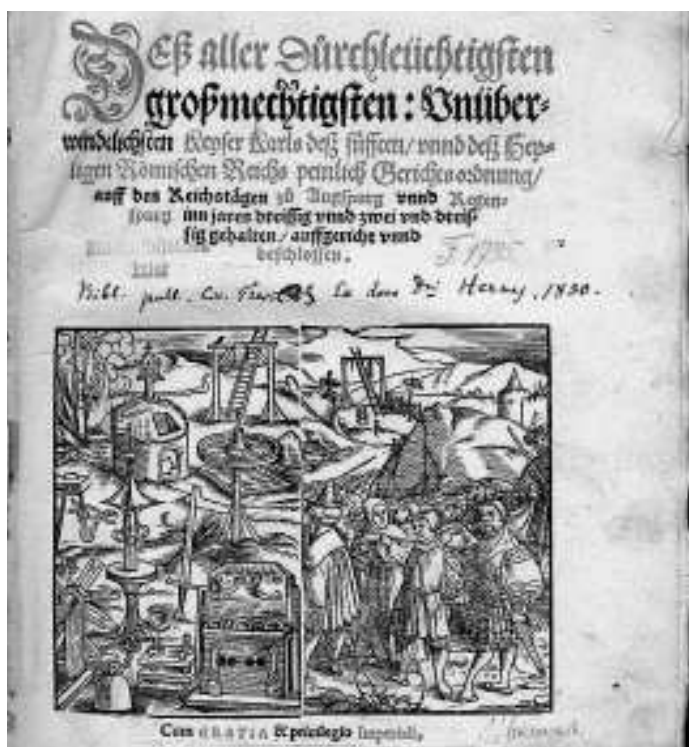 Deß aller Durchleüchtigsten
großmechtigsten: Vnüber-
windtlichsten Keyser Karls deß fünfften / vnnd deß Hey-
ligen Römischen Reichs peinlich Gerichts ordnung /
auff den Reichstägen zů Augspurg vnnd Regen-
spurg inn jaren dreissig vnnd zwei vnd dreis-
sig gehalten / auffgericht vnnd
beschlossen.
Bibl. publ. Dn. Henry. 1830.
Cum GRATIA & priuilegio Imperiali.